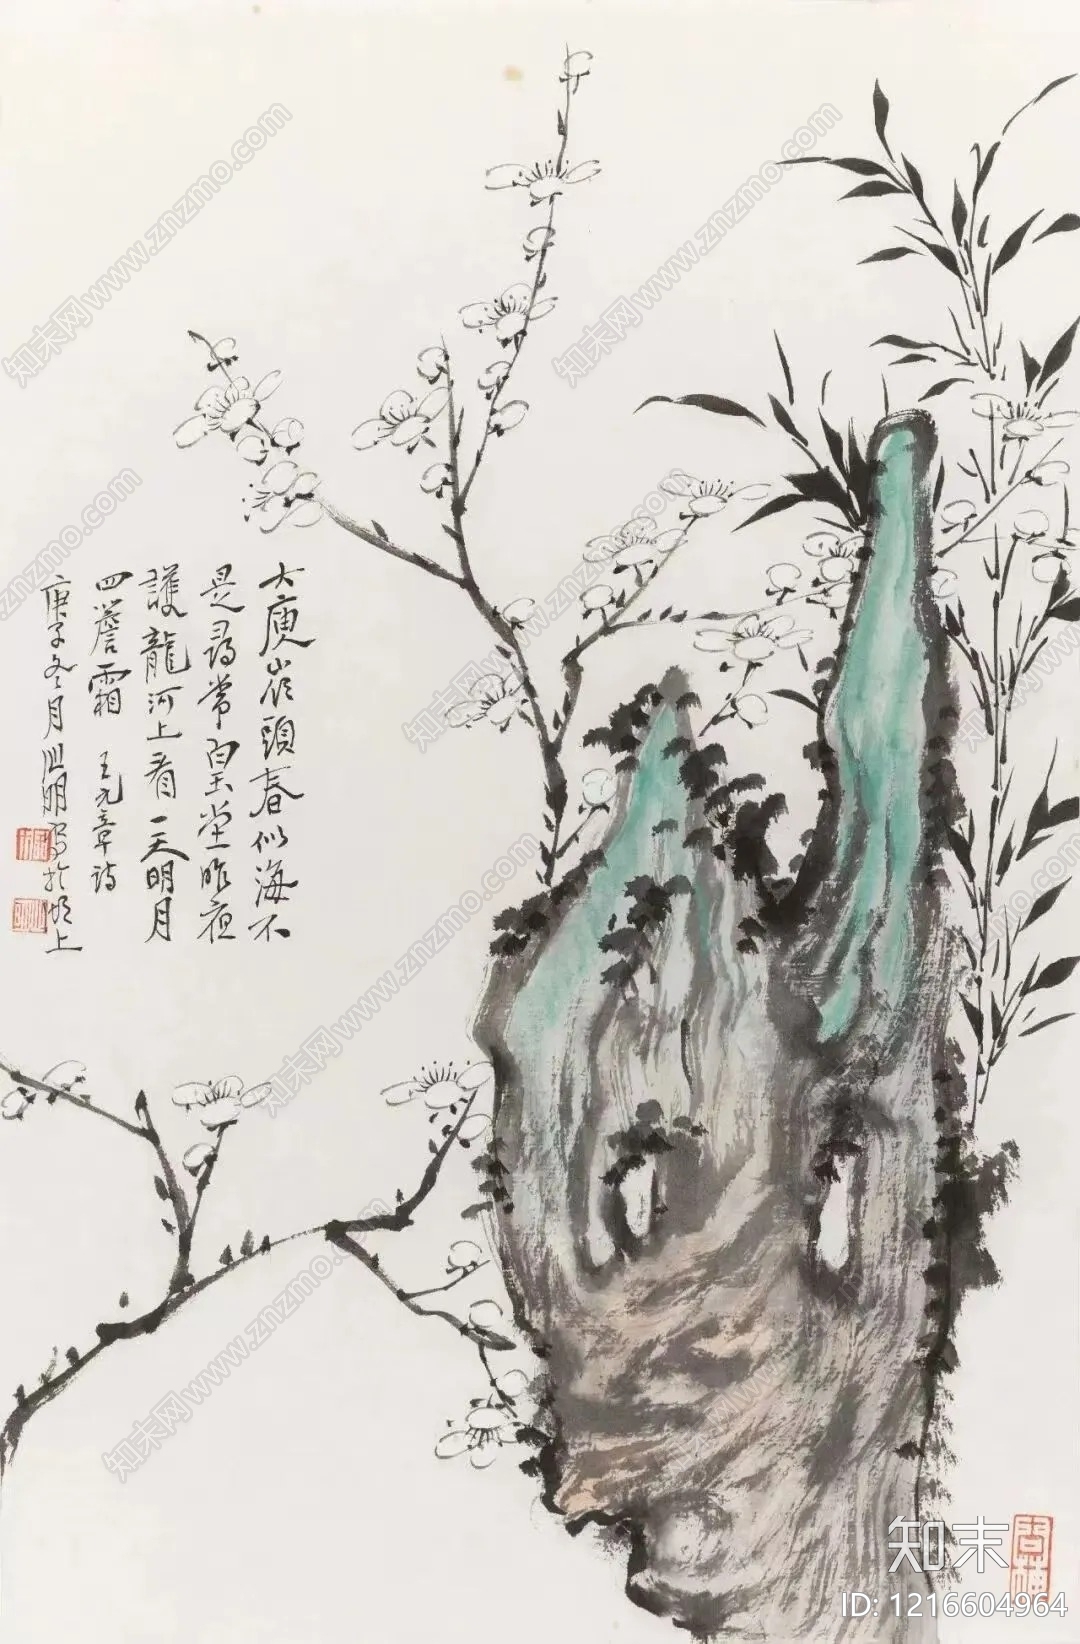 大庾岭頭春似海不
是尋常白玉堂昨夜
護龍河上看一天明月
四簷霜 王元章詩
庚子冬月 明写於湖上
知末网www.znzmo.com
知末
ID: 1216604964